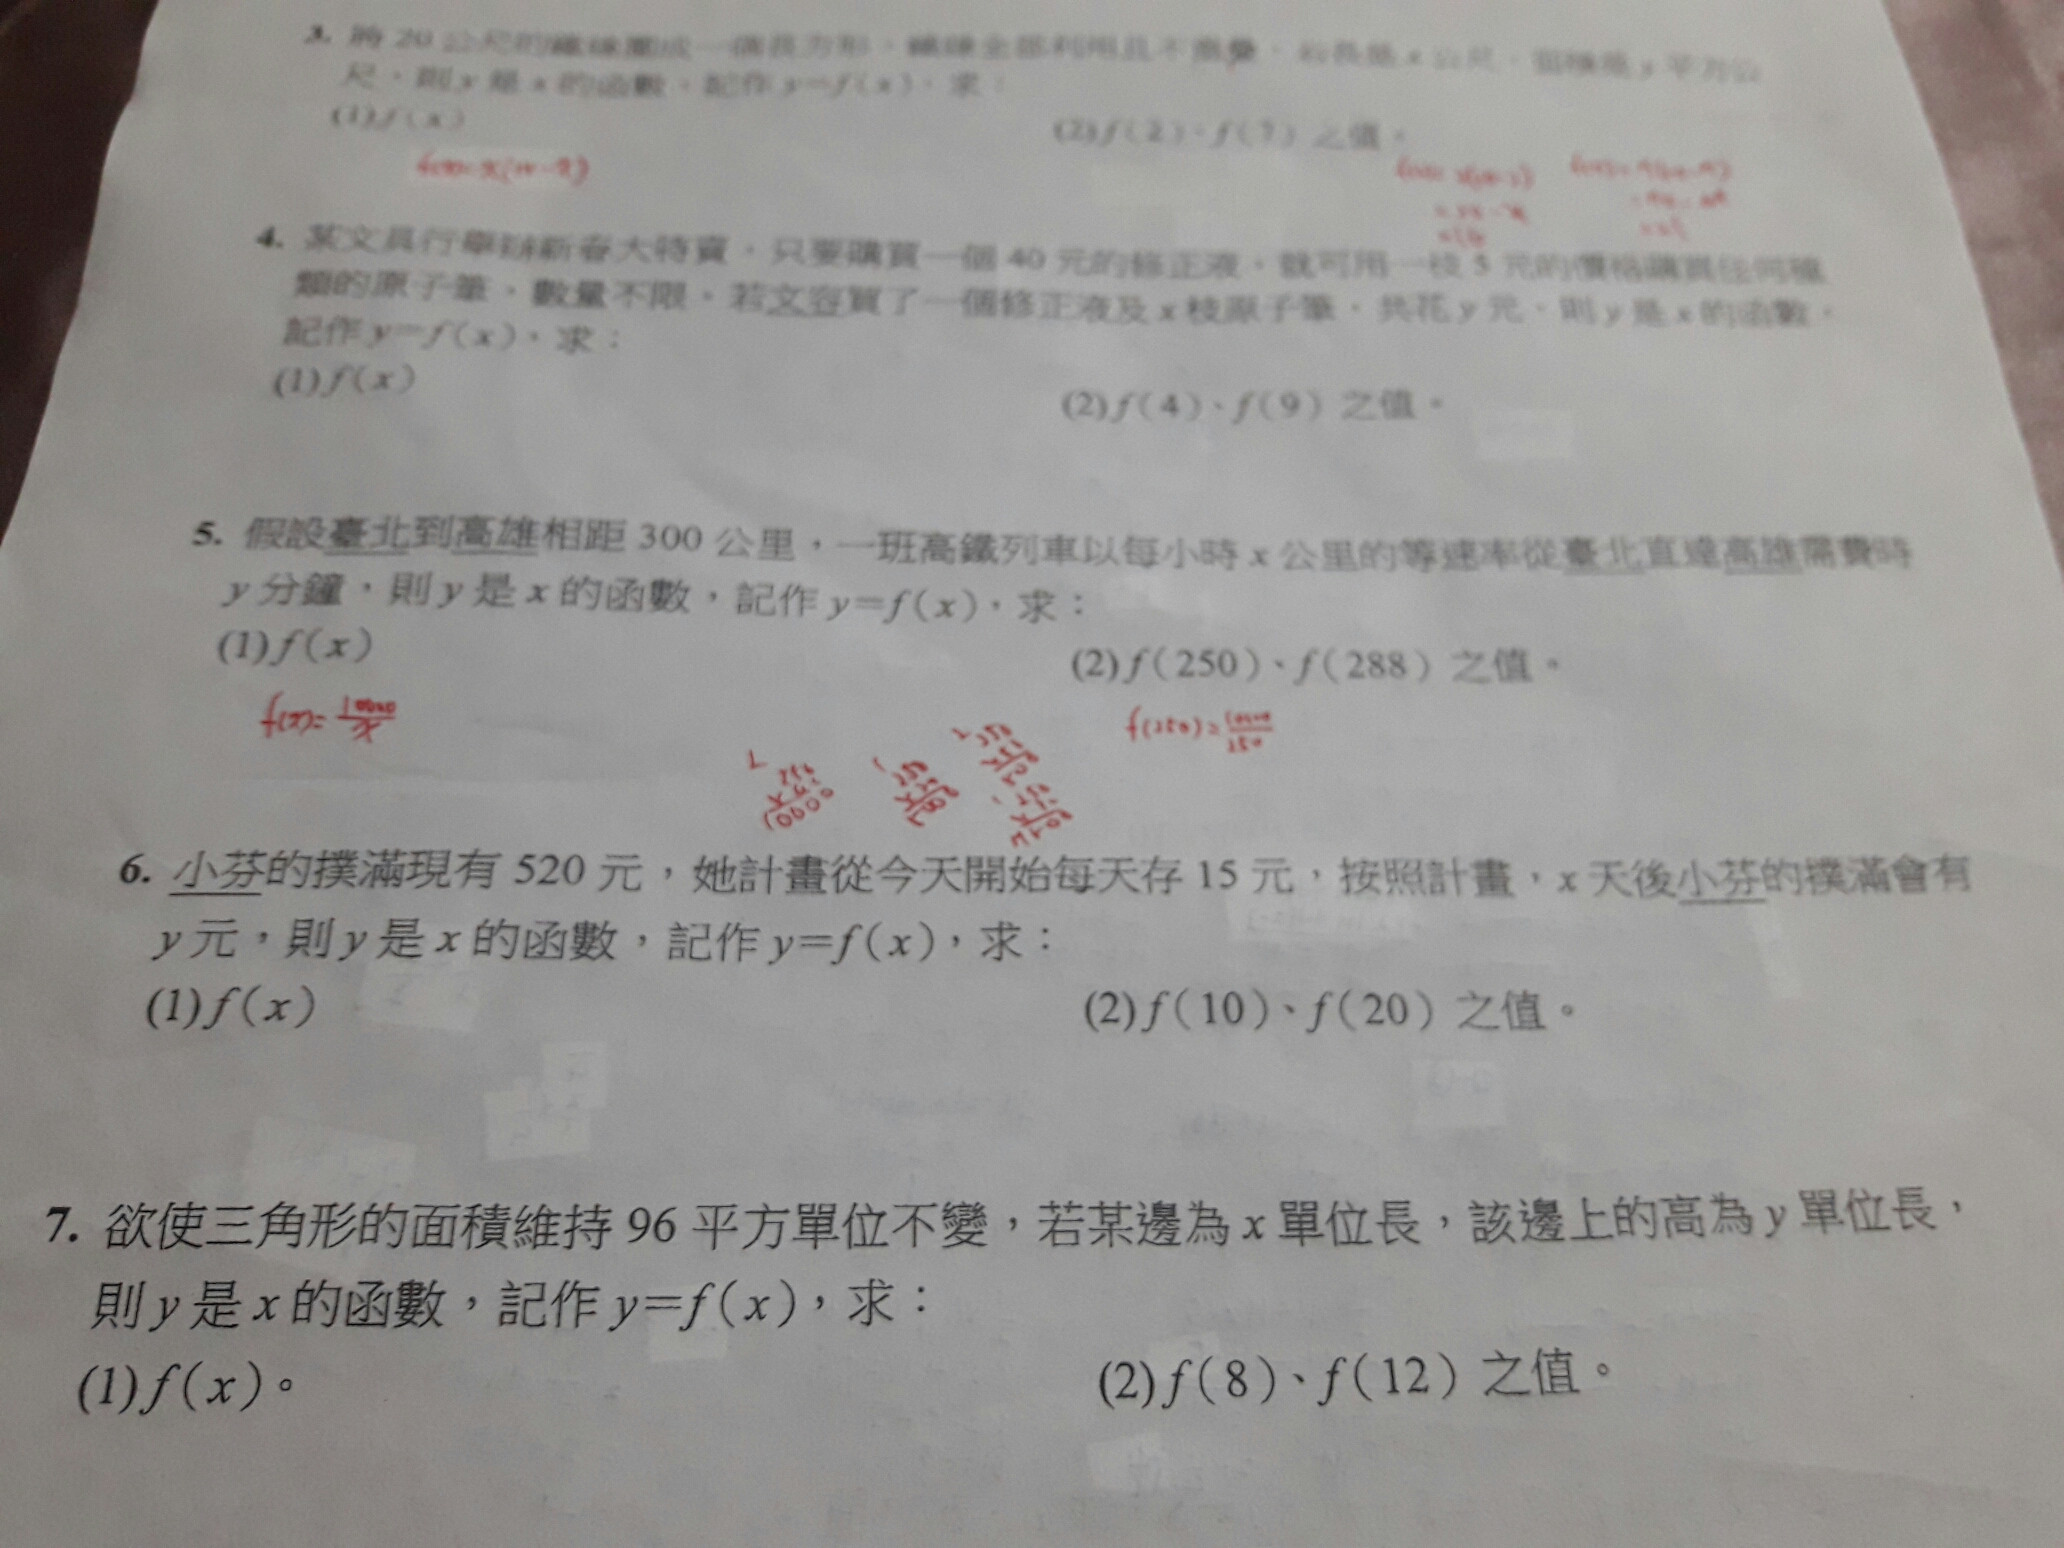 3. 將 20 公尺的鐵線圍成一個長方形，鐵線全部利用且不重疊，若長是 x 公尺，面積是 y 平方公
尺，則 y 是 x 的函數，記作 y=f(x)，求：
(1) f(x)
(2) f(2)、f(7) 之值。
4. 某文具行舉辦新春大特賣，只要購買一個 40 元的修正液，就可用一枝 5 元的價格購買任何種
類的原子筆，數量不限。若文容買了一個修正液及 x 枝原子筆，共花 y 元，則 y 是 x 的函數，
記作 y=f(x)，求：
(1) f(x)
(2) f(4)、f(9) 之值。
5. 假設臺北到高雄相距 300 公里，一班高鐵列車以每小時 x 公里的等速率從臺北直達高雄需費時
y 分鐘，則 y 是 x 的函數，記作 y=f(x)，求：
(1) f(x)
(2) f(250)、f(288) 之值。
6. 小芬的撲滿現有 520 元，她計畫從今天開始每天存 15 元，按照計畫，x 天後小芬的撲滿會有
y 元，則 y 是 x 的函數，記作 y=f(x)，求：
(1) f(x)
(2) f(10)、f(20) 之值。
7. 欲使三角形的面積維持 96 平方單位不變，若某邊為 x 單位長，該邊上的高為 y 單位長，
則 y 是 x 的函數，記作 y=f(x)，求：
(1) f(x)。
(2) f(8)、f(12) 之值。